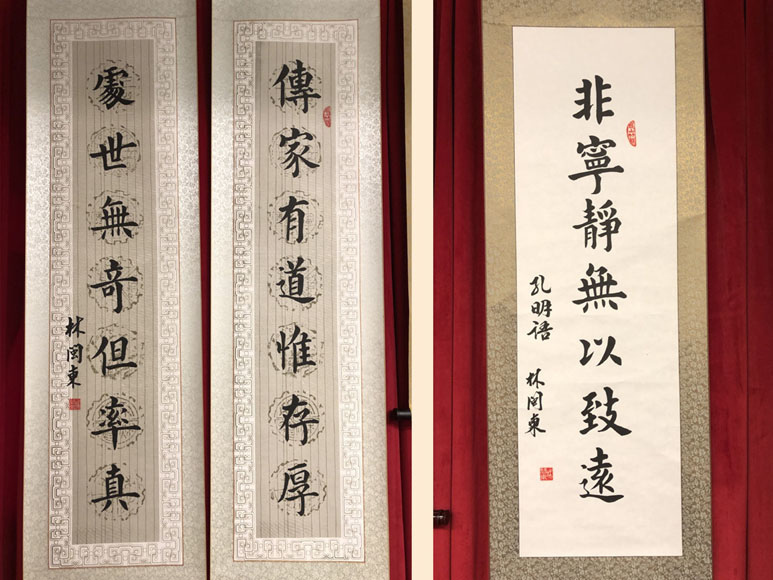 傳家有道惟存厚
處世無奇但率真
林閩東
非寧靜無以致遠
孔明語
林閩東